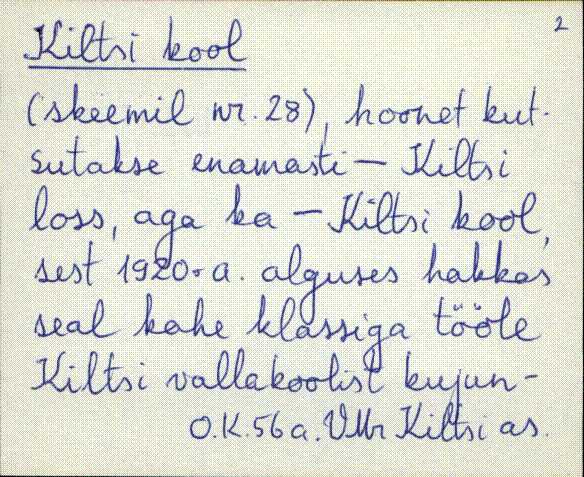 2
Kiltsi kool
(skeemil nr. 28), hoonet kut-
sutakse enamasti — Kiltsi
loss, aga ka — Kiltsi kool,
sest 1920. a. alguses hakkas
seal kahe klassiga tööle
Kiltsi vallakoolist kujun-
O.K. 56 a. VMr Kiltsi as.